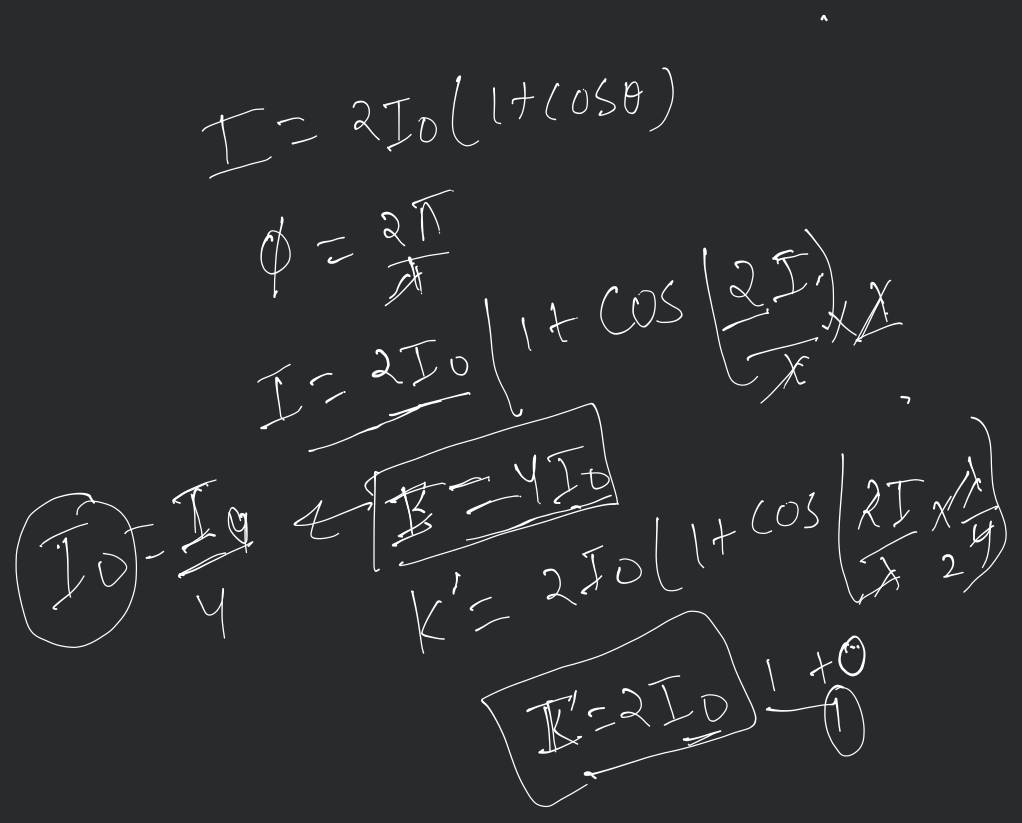 I = 2I0(1+cosθ)
ϕ = 2π/λ
I = 2I0(1+cos(2I/λ)×λ
I0 = I0/4 ← K = 4I0
K' = 2I0(1+cos(2I/λ × λ/4 2)
K' = 2I0 1+0
1